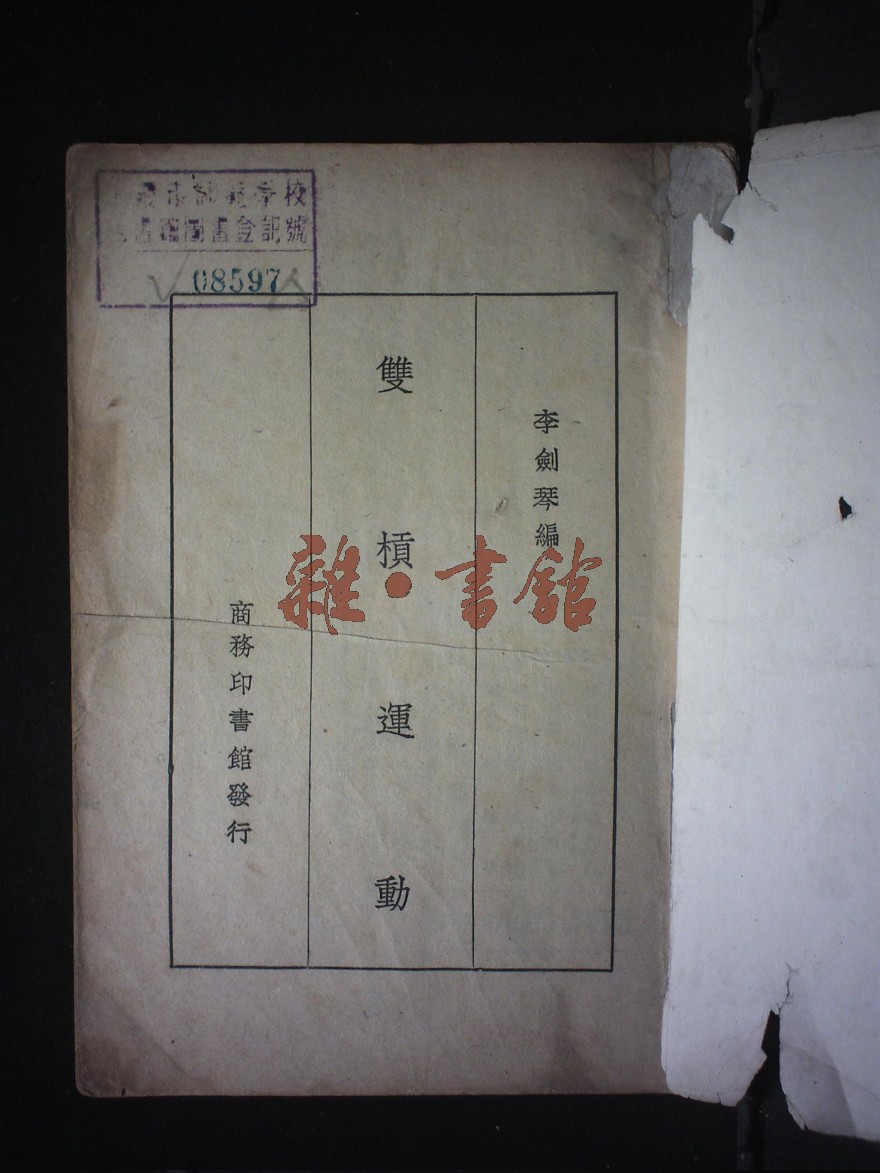 李劍琴編
雙槓運動
商務印書館發行
學校
圖書登記號
08597
雜·書館